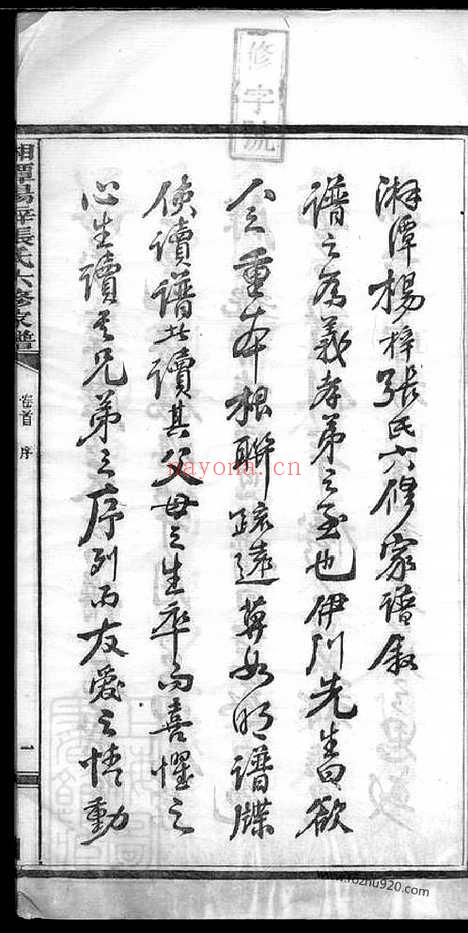 修字號
湘潭楊梓張氏六修家譜敘
譜之為義孝弟之至也伊川先生曰欲
人之重本根聯疏遠莫如明譜牒
使讀譜者讀其父母之生卒而喜懼之
心生讀其兄弟之序列而友愛之情動
湘潭楊梓張氏六修家譜
卷首 序
一
nayona.cn
www.rozhu920.com